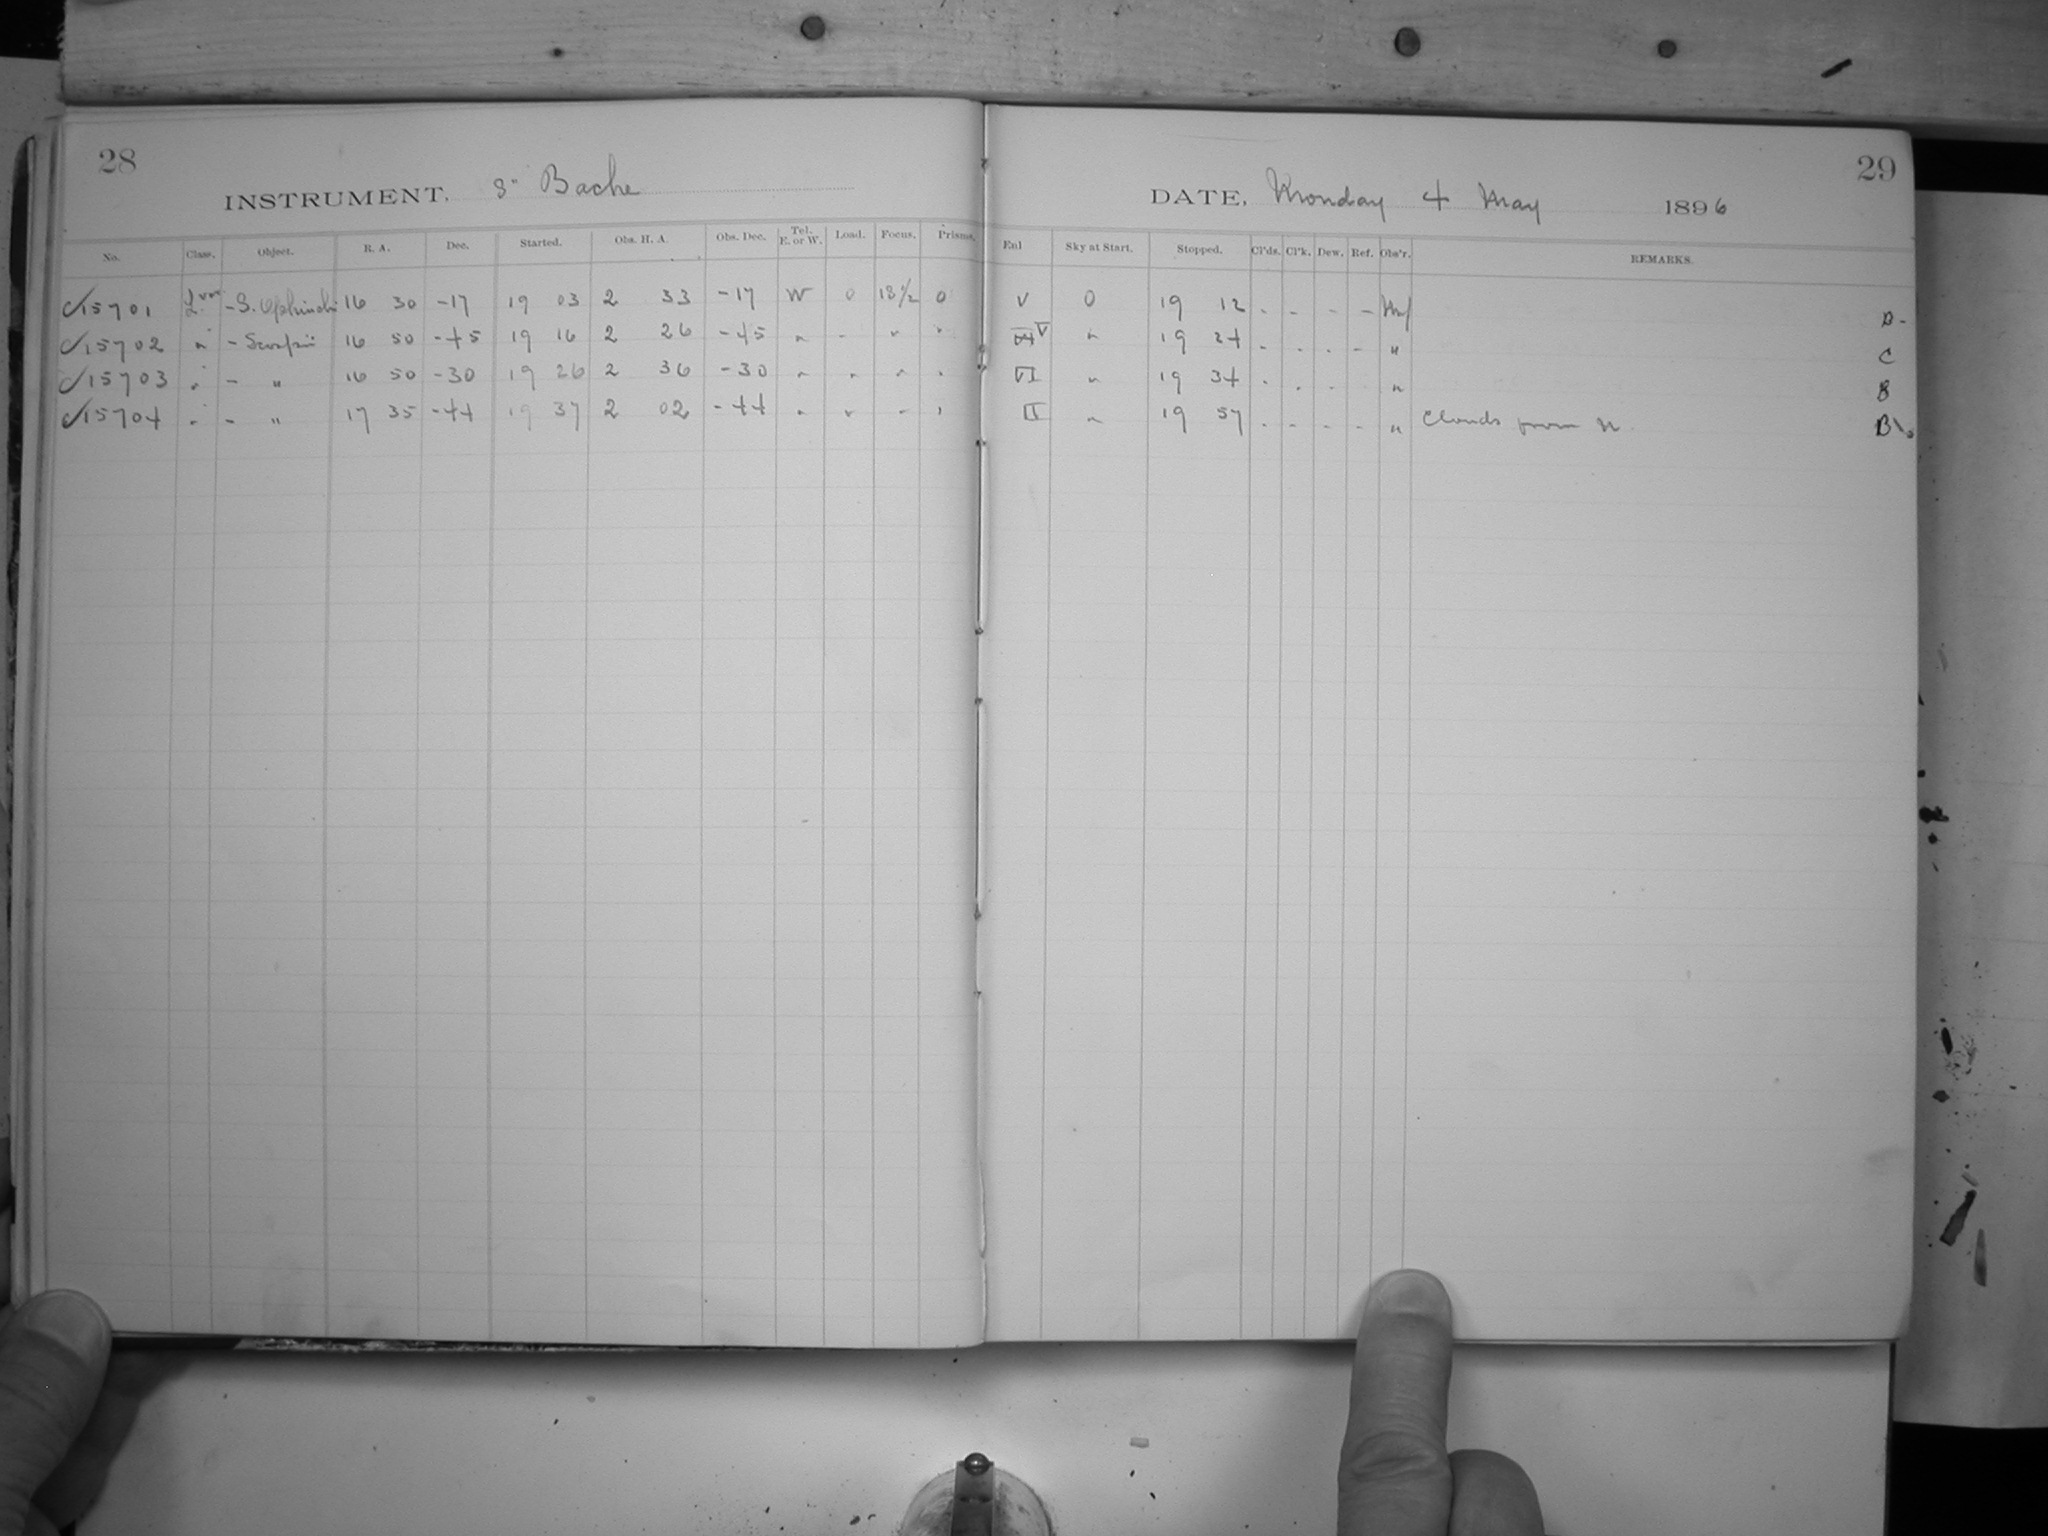 28
INSTRUMENT, 8" Bache
No. Class. Object. R. A. Dec. Started. Obs. H. A. Obs. Dec. Tel. E. or W. Load. Focus. Prisms.
✓15701 L - S. Ophiuchi 16 30 -17 19 03 2 33 -17 W 0 18½ 0
✓15702 " - Scorpii 16 50 -45 19 16 2 26 -45 " " " "
✓15703 " - " 16 50 -30 19 26 2 36 -30 " " " "
✓15704 " - " 17 35 -44 19 37 2 02 -44 " " " "
29
DATE, Monday 4 May 1896
Enl Sky at Start. Stopped. Cl'ds. Cl'k. Dew. Ref. Obs'r. REMARKS.
V 0 19 12 - - - - B-
V " 19 24 - - - - " C
VI " 19 34 - - - " B
II " 19 57 - - - - " Clouds from N. B